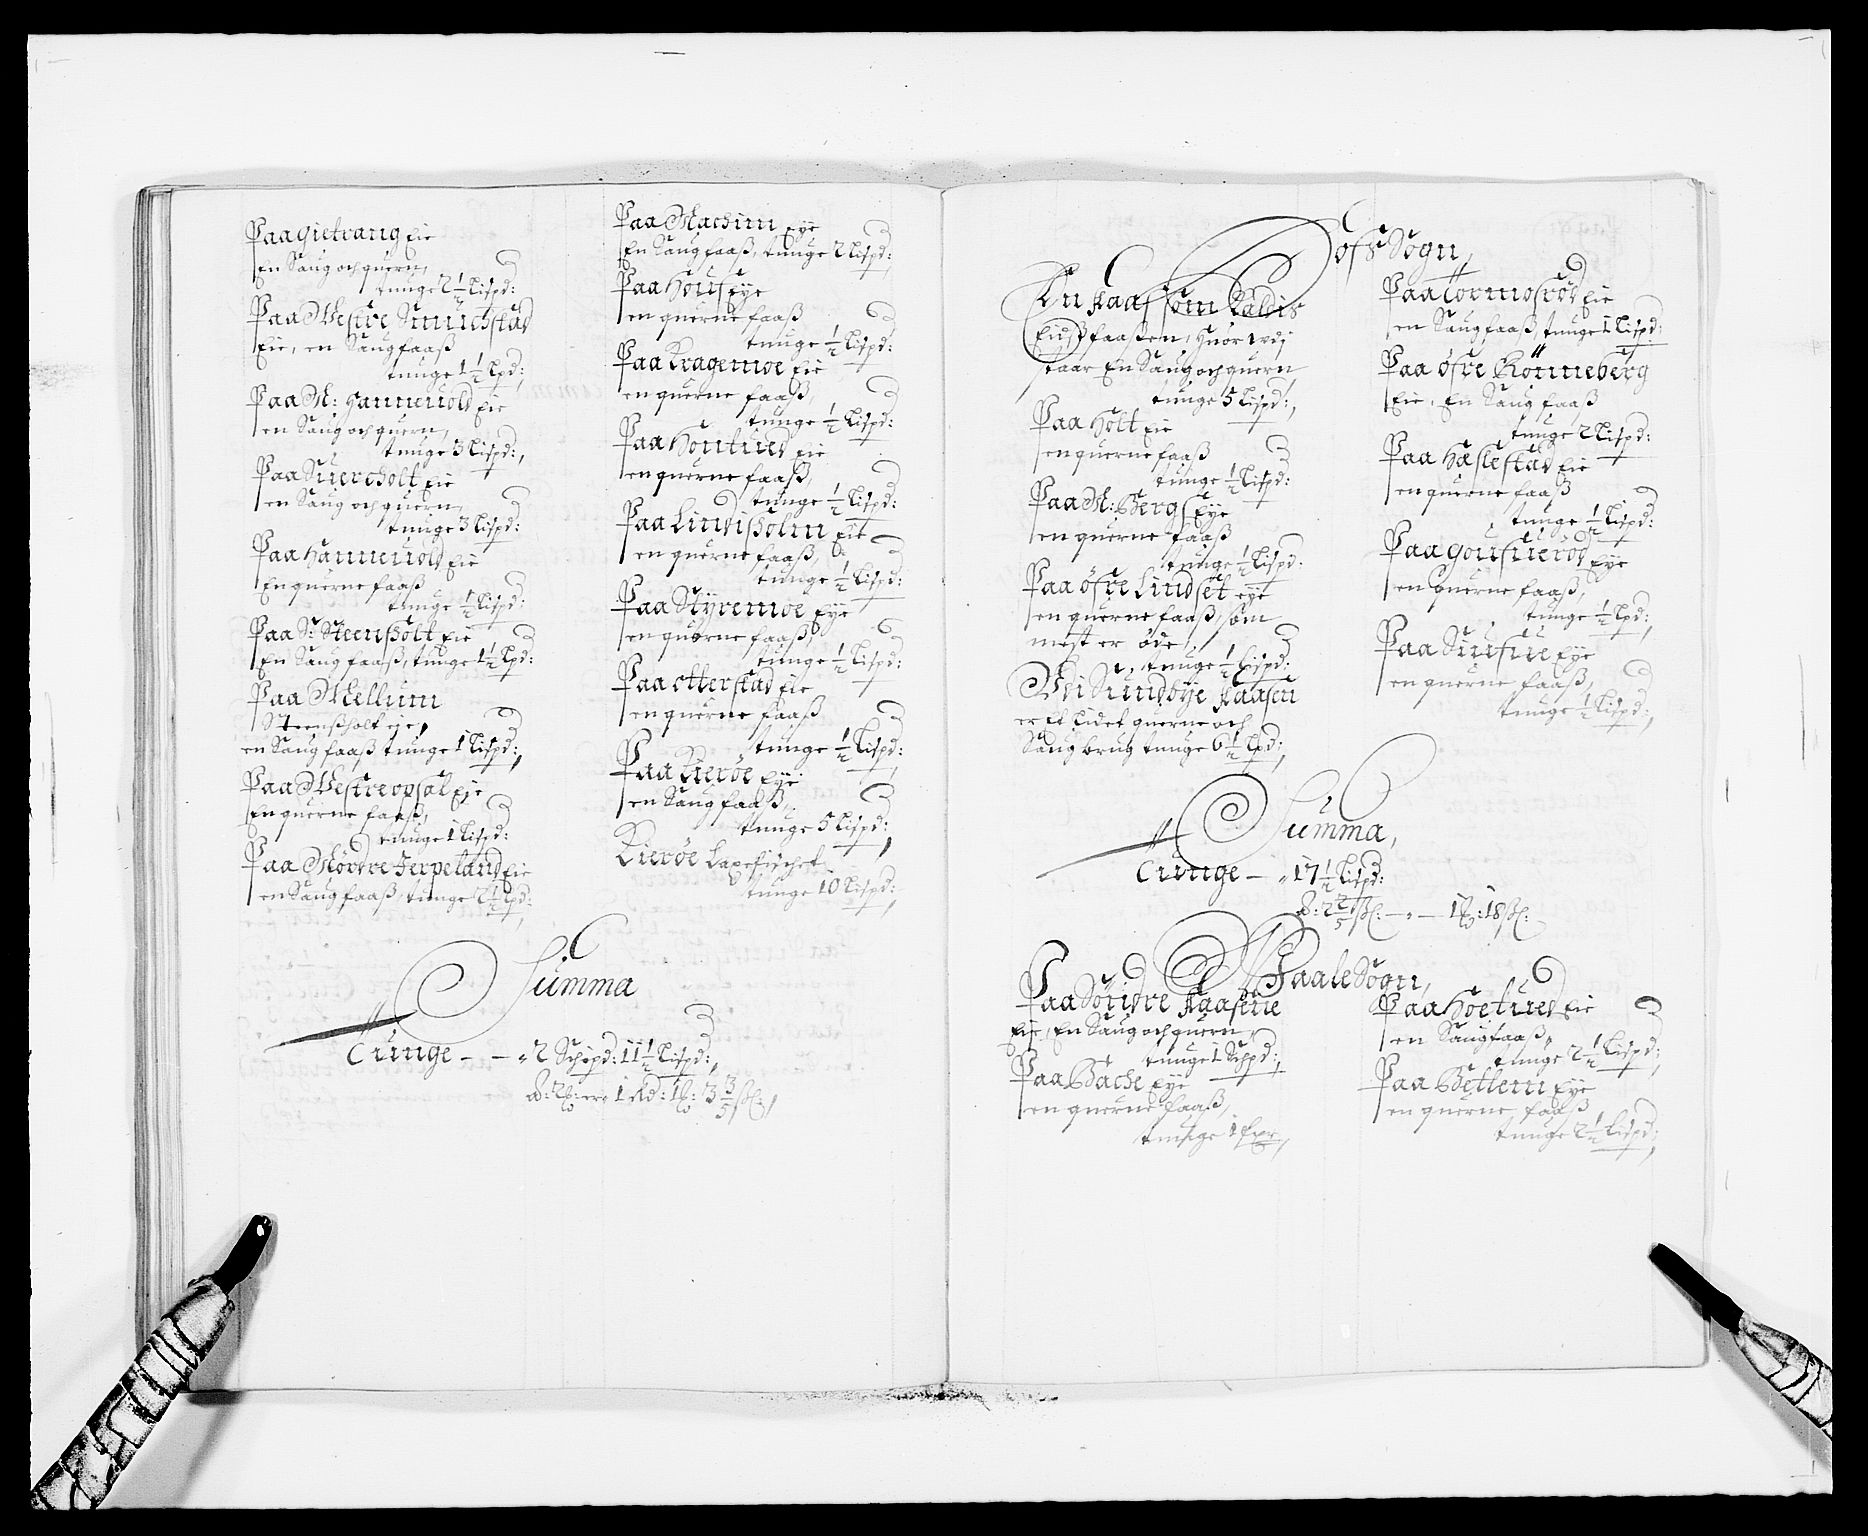 Paa gietrang Eie
En Saug och quern,
tunge 2 1/2 Lispd:
Paa Westre Smuchstad
Eie, en Saugfaaß
tunge 1 1/2 Lpd:
Paa N: Hannevold Eie
en Saug och quern,
tunge 3 Lispd:,
Paa Suercholt Eie
en Saug och quern,
tunge 3 Lispd:
Paa Hannevold Eie
En querne faaß
tunge 1/2 Lispd:
Paa S: Steenßolt Eie
En Saug faaß, tunge 1 1/2 Lpd:
Paa Mellum
Steenßholt eje,
en Saug faaß tunge 1 Lispd:,
Paa Westre opsal Eje
En querne faaß,
tunge 1 Lispd:
Paa Nørdre Jerpeland Eie
en Saug faaß, tunge 2 1/2 Lpd:
Paa Machim Eye
En Saug faaß, tunge 2 Lispd:
Paa Hous Eye
en querne faaß
tunge 1/2 Lispd:
Paa Kragemoe Eie
en querne faaß,
tunge 1/2 Lispd:
Paa Hontued Eie
en querne faaß,
tunge 1/2 Lispd:
Paa Lindißolm Eie
en querne faaß,
tunge 1/2 Lispd:
Paa Styremoe Eye
en querne faaß,
tunge 1/2 Lispd:
Paa Otterstad Eie
en querne faaß
tunge 1/2 Lispd:
Paa Kierøe Eye
en Saug faaß,
tunge 5 Lispd:
Kierøe Laxefischet
tunge 10 Lispd:
Summa
Tunge — — 2 Schpd: 11 1/2 Lispd:,
er 1 Rd: 1 : 3 3/5 ßl:,
Hofs Sogn,
En faas som kaldis
Eidßfaaßen, huor vdj
staar En Saug och quern
tunge 5 Lispd:,
Paa Holt Eie
en querne faaß
tunge 1/2 Lispd:
Paa N: Bergs Eye
en querne faaß
tunge 1/2 Lispd:
Paa Øfre Lindset eye
en querne faaß, som
mest er øde,
tunge 1/2 Lispd:
Wdi Sundbye faasen
er et lidet querne och
Saug brug tunge 6 1/2 Lpd:,
Paa Tormosrød Eie
en Saug faaß, tunge 1 Lispd:
Paa øfre Rönneberg
Eie, En Saug faaß
tunge 2 Lispd:
Paa Hæslestad Eie
en querne faaß
tunge 1/2 Lispd:
Paa gousuerød Eye
en querne faaß,
tunge 1/2 Lpd:
Paa Sussue Eye
en querne faaß,
tunge 1/2 Lispd:
Summa,
Tunge — 17 1/2 Lispd:
2 2/5 ßl: — — 1 : 18 ßl:
Waale Sogn,
Paa Söndre faasene
Eie, En Saug och quern
tunge 1 Schpd:,
Paa Bache Eye
en querne faaß,
tunge 1
Paa Høetued Eie
en Saugfaaß,
tunge 2 1/2 Lispd:
Paa Bettem Eye
en querne faaß
tunge 2 1/2 Lispd: